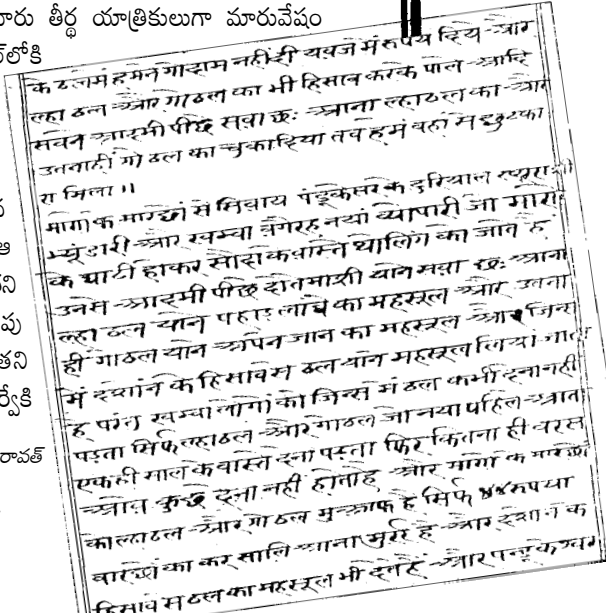 ారు తీర్థ యాత్రికులుగా మారువేషం
్‌లోకి
ఆ
ని
పు
తని
ర్వేకి
రావత్
के ठलमें हमने गोदाम नहीं दी यवजे में रुपये दिये और
ल्हा ठल और गोठल का भी हिसाब करके पाल आदि
सवन आदमी पीछे सवा छः आना ल्हाठल का और
उतनाही गोठल का चुकादिया तब हमें वहां से छुटका
रा मिला।।
मार्गा के मारछों से सिवाय पंडूकेसर के दुरियाल
भ्यूंडारी और खम्वा वगैरह नयां व्यापारी जो मार्गा
के घाटी होकर सौदा के वास्ते थोलिंग को जाते हैं
उनसे आदमी पीछे दोतमाशी याने सवा छः आना
ल्हा ठल याने पहाड़ लांघे का महसूल और उतना
ही गोठल याने आपने जाने का महसूल और जिन्स
में दशांने के हिसाब से ठल याने महसूल लिया जाता
है परंतु खम्वा लोगों को जिन्स में ठल कभी देना नही
पड़ता सिर्फ ल्हाठल और गोठल जो नया पहिले आता
एकही साल के वास्ते देना पड़ता फिर कितना ही वरस
आवे कुछ देना नहीं होता है और मार्गा के मारछों
का ल्हाठल और गोठल मुआफ है सिर्फ ४४ रुपया
वारछों का कर सालि आना मुकर्र है और दशांन के
हिसाब से ठल का महसूल भी देते हैं और पन्डुकेश्वर